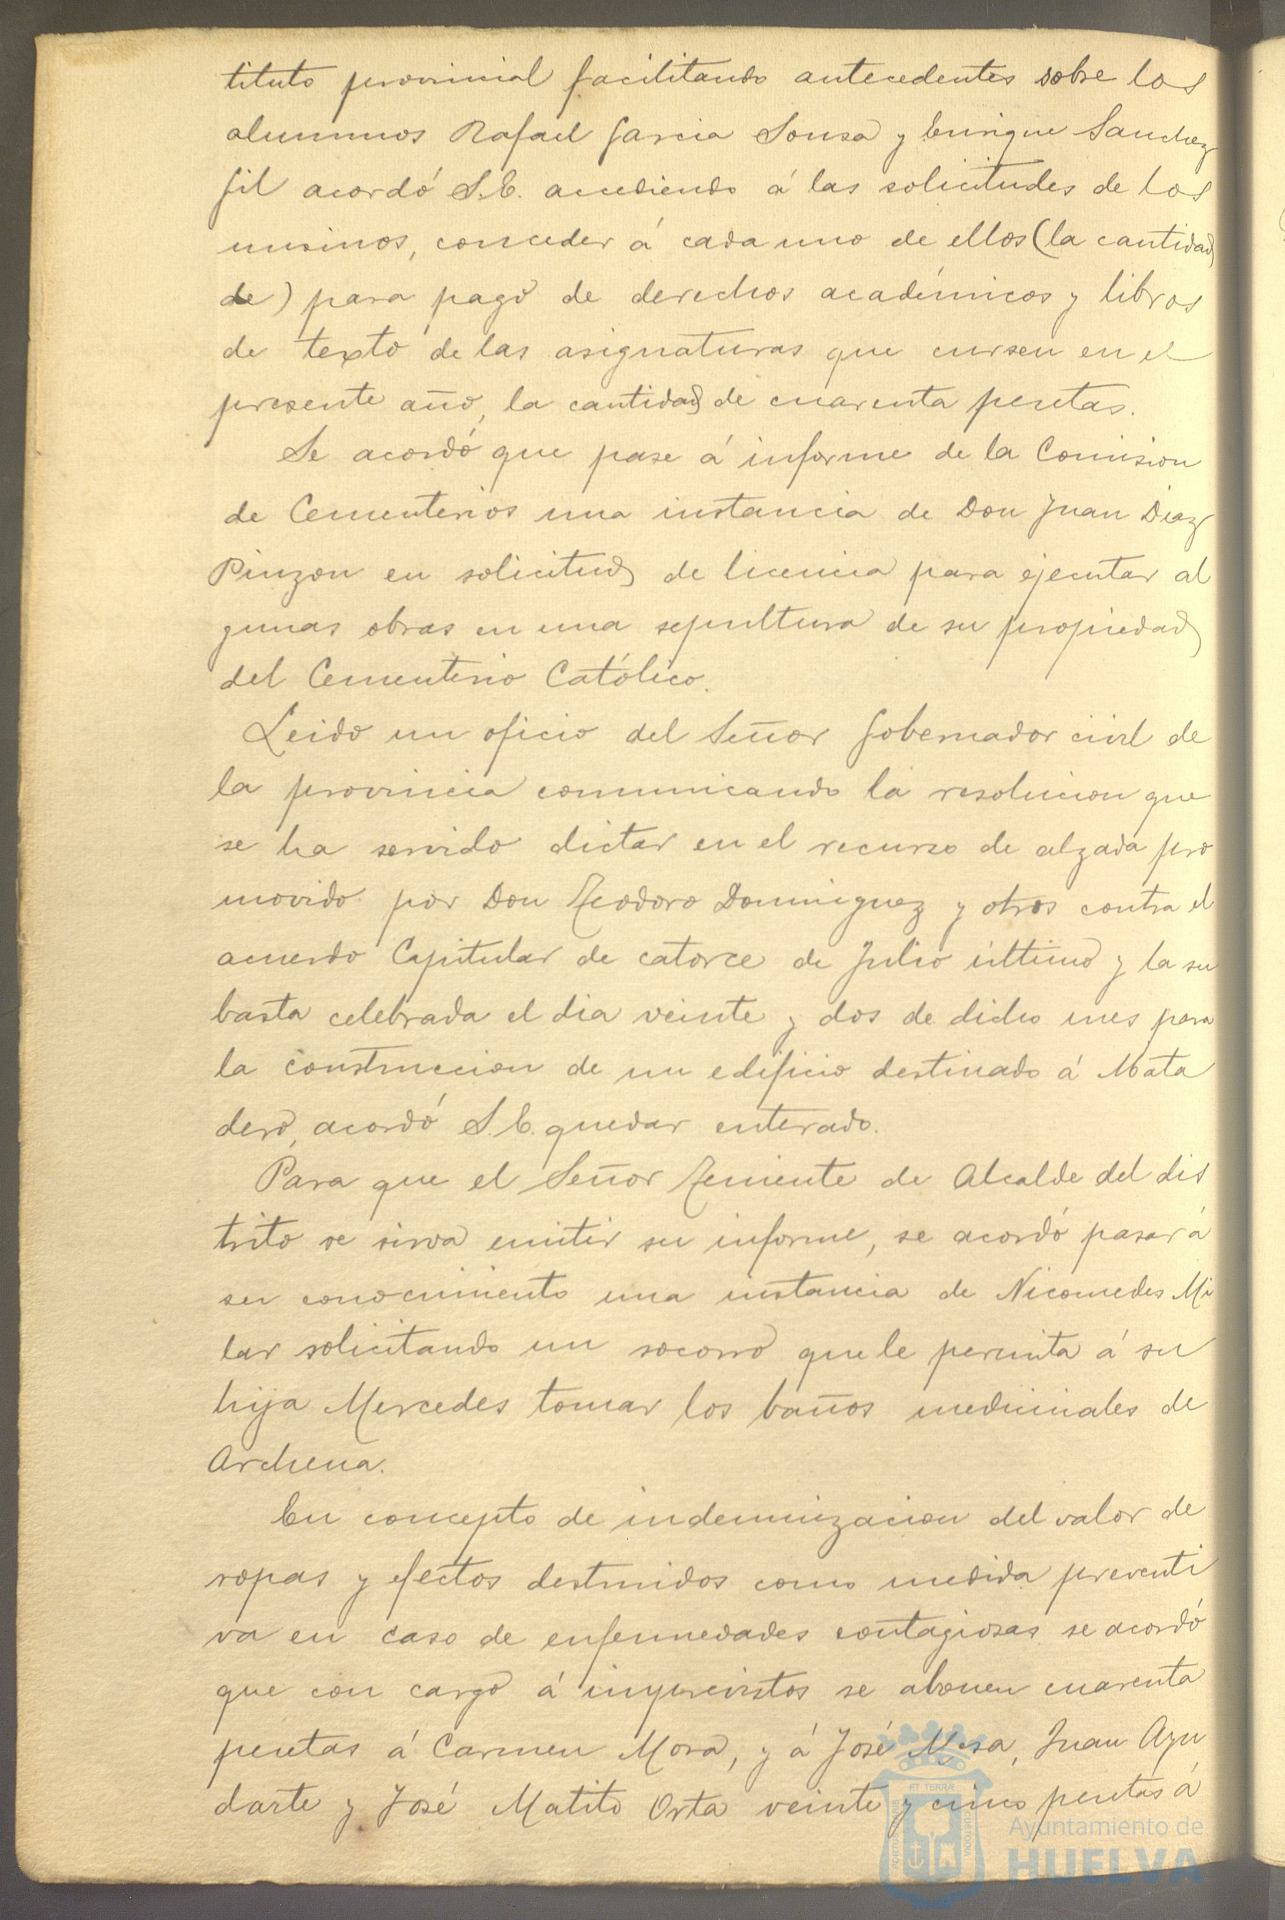 tituto provincial facilitando antecedentes sobre los
alumnos Rafael Garcia Sousa y Enrique Sanchez
Gil acordó S.E. accediendo á las solicitudes de los
mismos, conceder á cada uno de ellos (la cantidad
de) para pago de derechos académicos y libros
de texto de las asignaturas que cursen en el
presente año, la cantidad de cuarenta pesetas.
Se acordó que pase á informe de la Comision
de Cementerios una instancia de Don Juan Diaz
Pinzon en solicitud de licencia para ejecutar al
gunas obras en una sepultura de su propiedad
del Cementerio Católico.
Leido un oficio del Señor Gobernador civil de
la provincia comunicando la resolucion que
se ha servido dictar en el recurso de alzada pro
movido por Don Teodoro Dominguez y otros contra el
acuerdo Capitular de catorce de Julio último y la su
basta celebrada el dia veinte y dos de dicho mes para
la construccion de un edificio destinado á Mata
dero, acordó S.E. quedar enterado.
Para que el Señor Teniente de Alcalde del dis
trito se sirva emitir su informe, se acordó pasar á
su conocimiento una instancia de Nicomedes Mi
lar solicitando un socorro que le permita á su
hija Mercedes tomar los baños medicinales de
Archena.
En concepto de indemnizacion del valor de
ropas y efectos destruidos como medida preventi
va en caso de enfermedades contagiosas se acordó
que con cargo á imprevistos se abonen cuarenta
pesetas á Carmen Mora, y á José Mesa, Juan Ayu
darte y José Matito Orta veinte y cinco pesetas á
ET TERRÆ
Ayuntamiento de
HUELVA